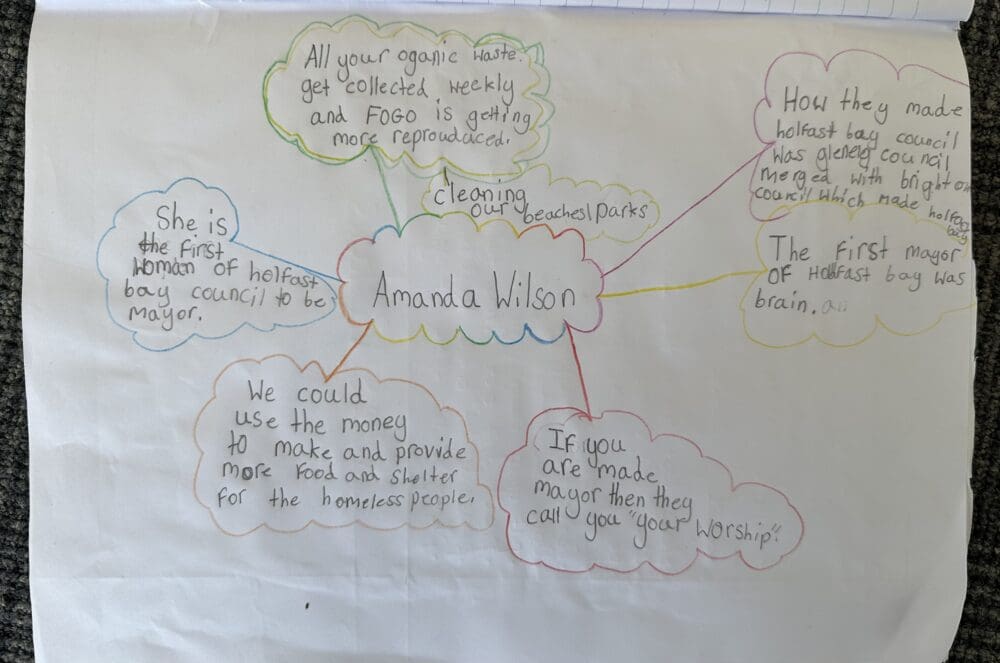 All your oganic waste.
get collected weekly
and FOGO is getting
more reproudaced.
cleaning
our beaches/parks
How they made
holfast bay council
was glenelg council
merged with brighton
council which made holfast
bay
She is
the first
woman of holfast
bay council to be
mayor.
Amanda Wilson
The first mayor
OF Holdfast bay was
brain.
We could
use the money
to make and provide
more food and shelter
for the homeless people.
If you
are made
mayor then they
call you "your worship".